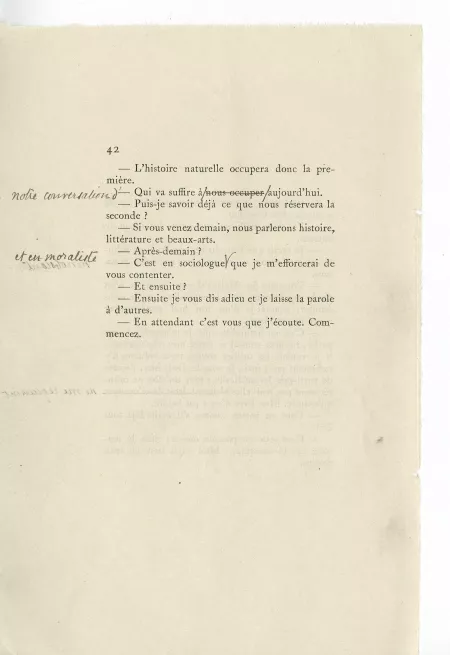 42
— L'histoire naturelle occupera donc la pre-
mière.
notre conversation d' — Qui va suffire à/nous occuper/aujourd'hui.
— Puis-je savoir déjà ce que nous réservera la
seconde ?
— Si vous venez demain, nous parlerons histoire,
littérature et beaux-arts.
— Après-demain ?
et en moraliste — C'est en sociologue que je m'efforcerai de
vous contenter.
— Et ensuite ?
— Ensuite je vous dis adieu et je laisse la parole
à d'autres.
— En attendant c'est vous que j'écoute. Com-
mencez.